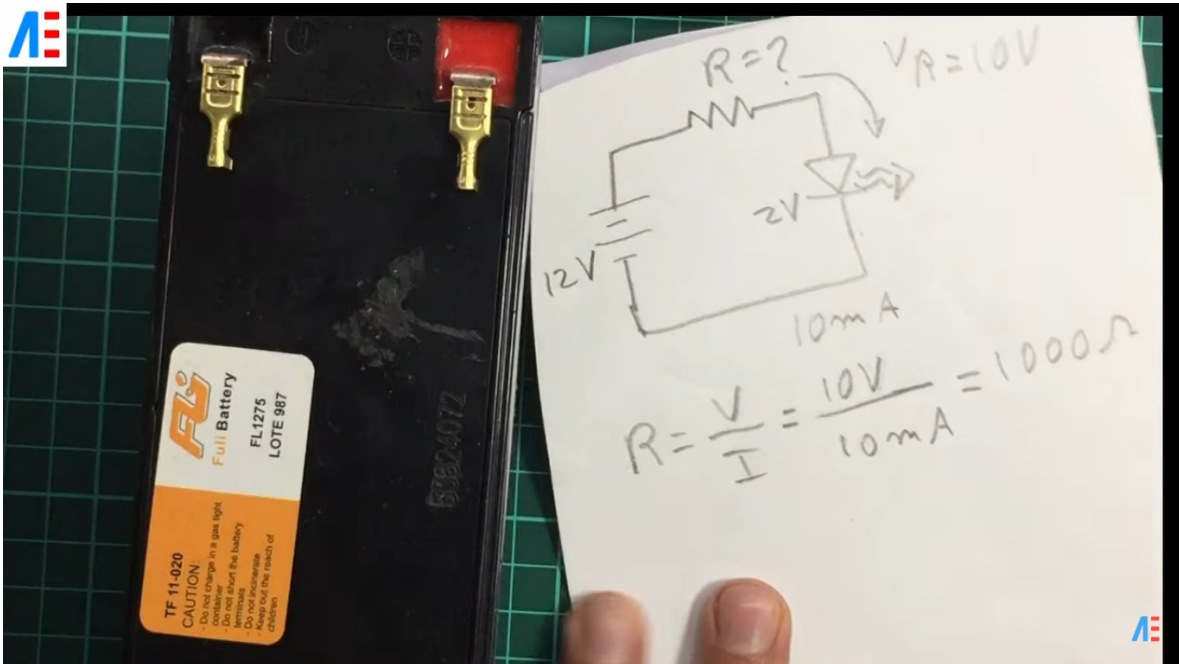 Æ
R=?
VR=10V
2V
12V
10mA
R = V/I = 10V/10mA = 1000Ω
FLi
Fuli Battery
FL1275
LOTE 987
TF 11-020
CAUTION:
- Do not charge in a gas tight
container
- Do not short the battery
terminals
- Do not incinerate
- Keep out the reach of
children
Æ